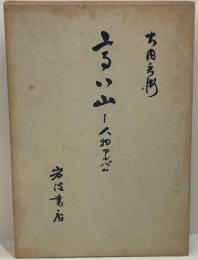 大内兵衛
高い山
—人物アルバム
岩波書店